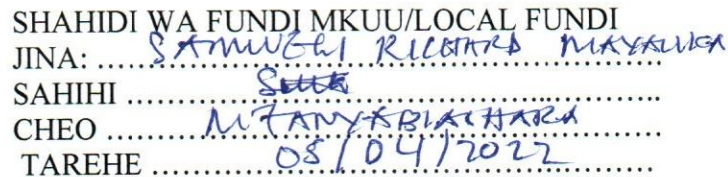 SHAHIDI WA FUNDI MKUU/LOCAL FUNDI
JINA: .... SAMWELI RICHARD MAYALUKA
SAHIHI ....................
CHEO ........ MFANYABIASHARA
TAREHE ............ 05/04/2022